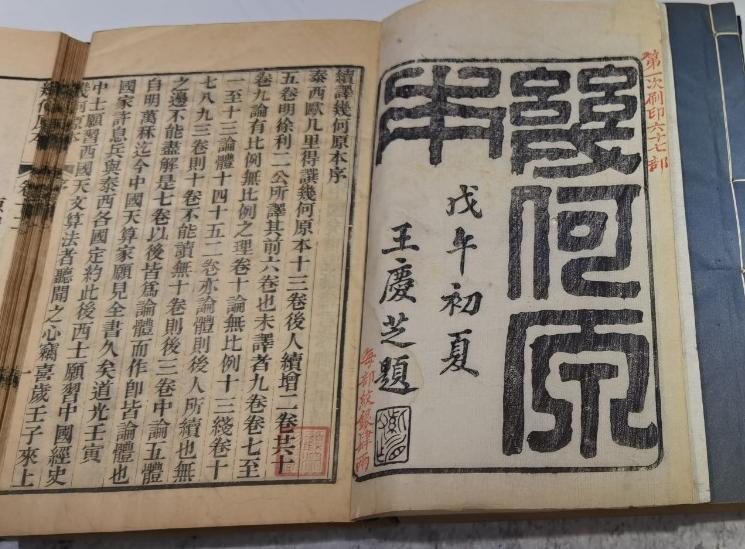 第一次刷印六十七部
幾何原
本
戊午初夏
王慶芝題
每部紋銀肆兩
續譯幾何原本序
泰西歐几里得譔幾何原本十三卷後人續增二卷共十
五卷明徐利二公所譯其前六卷也未譯者九卷卷七至
卷九論有比例無比例之理卷十論無比例十三綫卷十
一至十三論體十四十五二卷亦論體則後人所續也無
七八九三卷則十卷不能讀無十卷則後三卷中論五體
之邊不能盡解是七卷以後皆爲論體而作即皆論體也
自明萬秝迄今中國天算家願見全書久矣道光壬寅
國家許息兵與泰西各國定約此後西士願習中國經史
中士願習西國天文算法者聽聞之心竊喜歲壬子來上
幾何原本 序 一
幾何原本